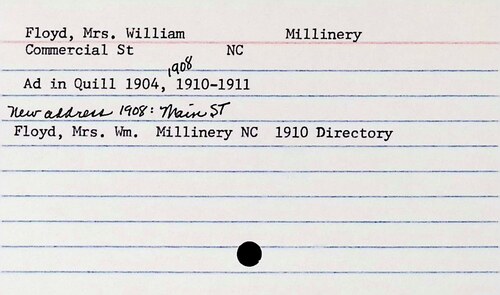 Floyd, Mrs. William Millinery
Commercial St NC
Ad in Quill 1904, 1908 1910-1911
New address 1908: Main ST
Floyd, Mrs. Wm. Millinery NC 1910 Directory